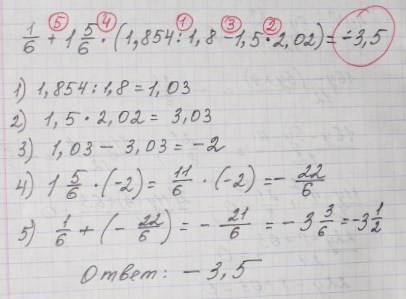 ⑤ ④ ① ③ ②
1/6 + 1 5/6 · (1,854 : 1,8 - 1,5 · 2,02) = -3,5
1) 1,854 : 1,8 = 1,03
2) 1,5 · 2,02 = 3,03
3) 1,03 - 3,03 = -2
4) 1 5/6 · (-2) = 11/6 · (-2) = - 22/6
5) 1/6 + (- 22/6) = - 21/6 = -3 3/6 = -3 1/2
Ответ: -3,5